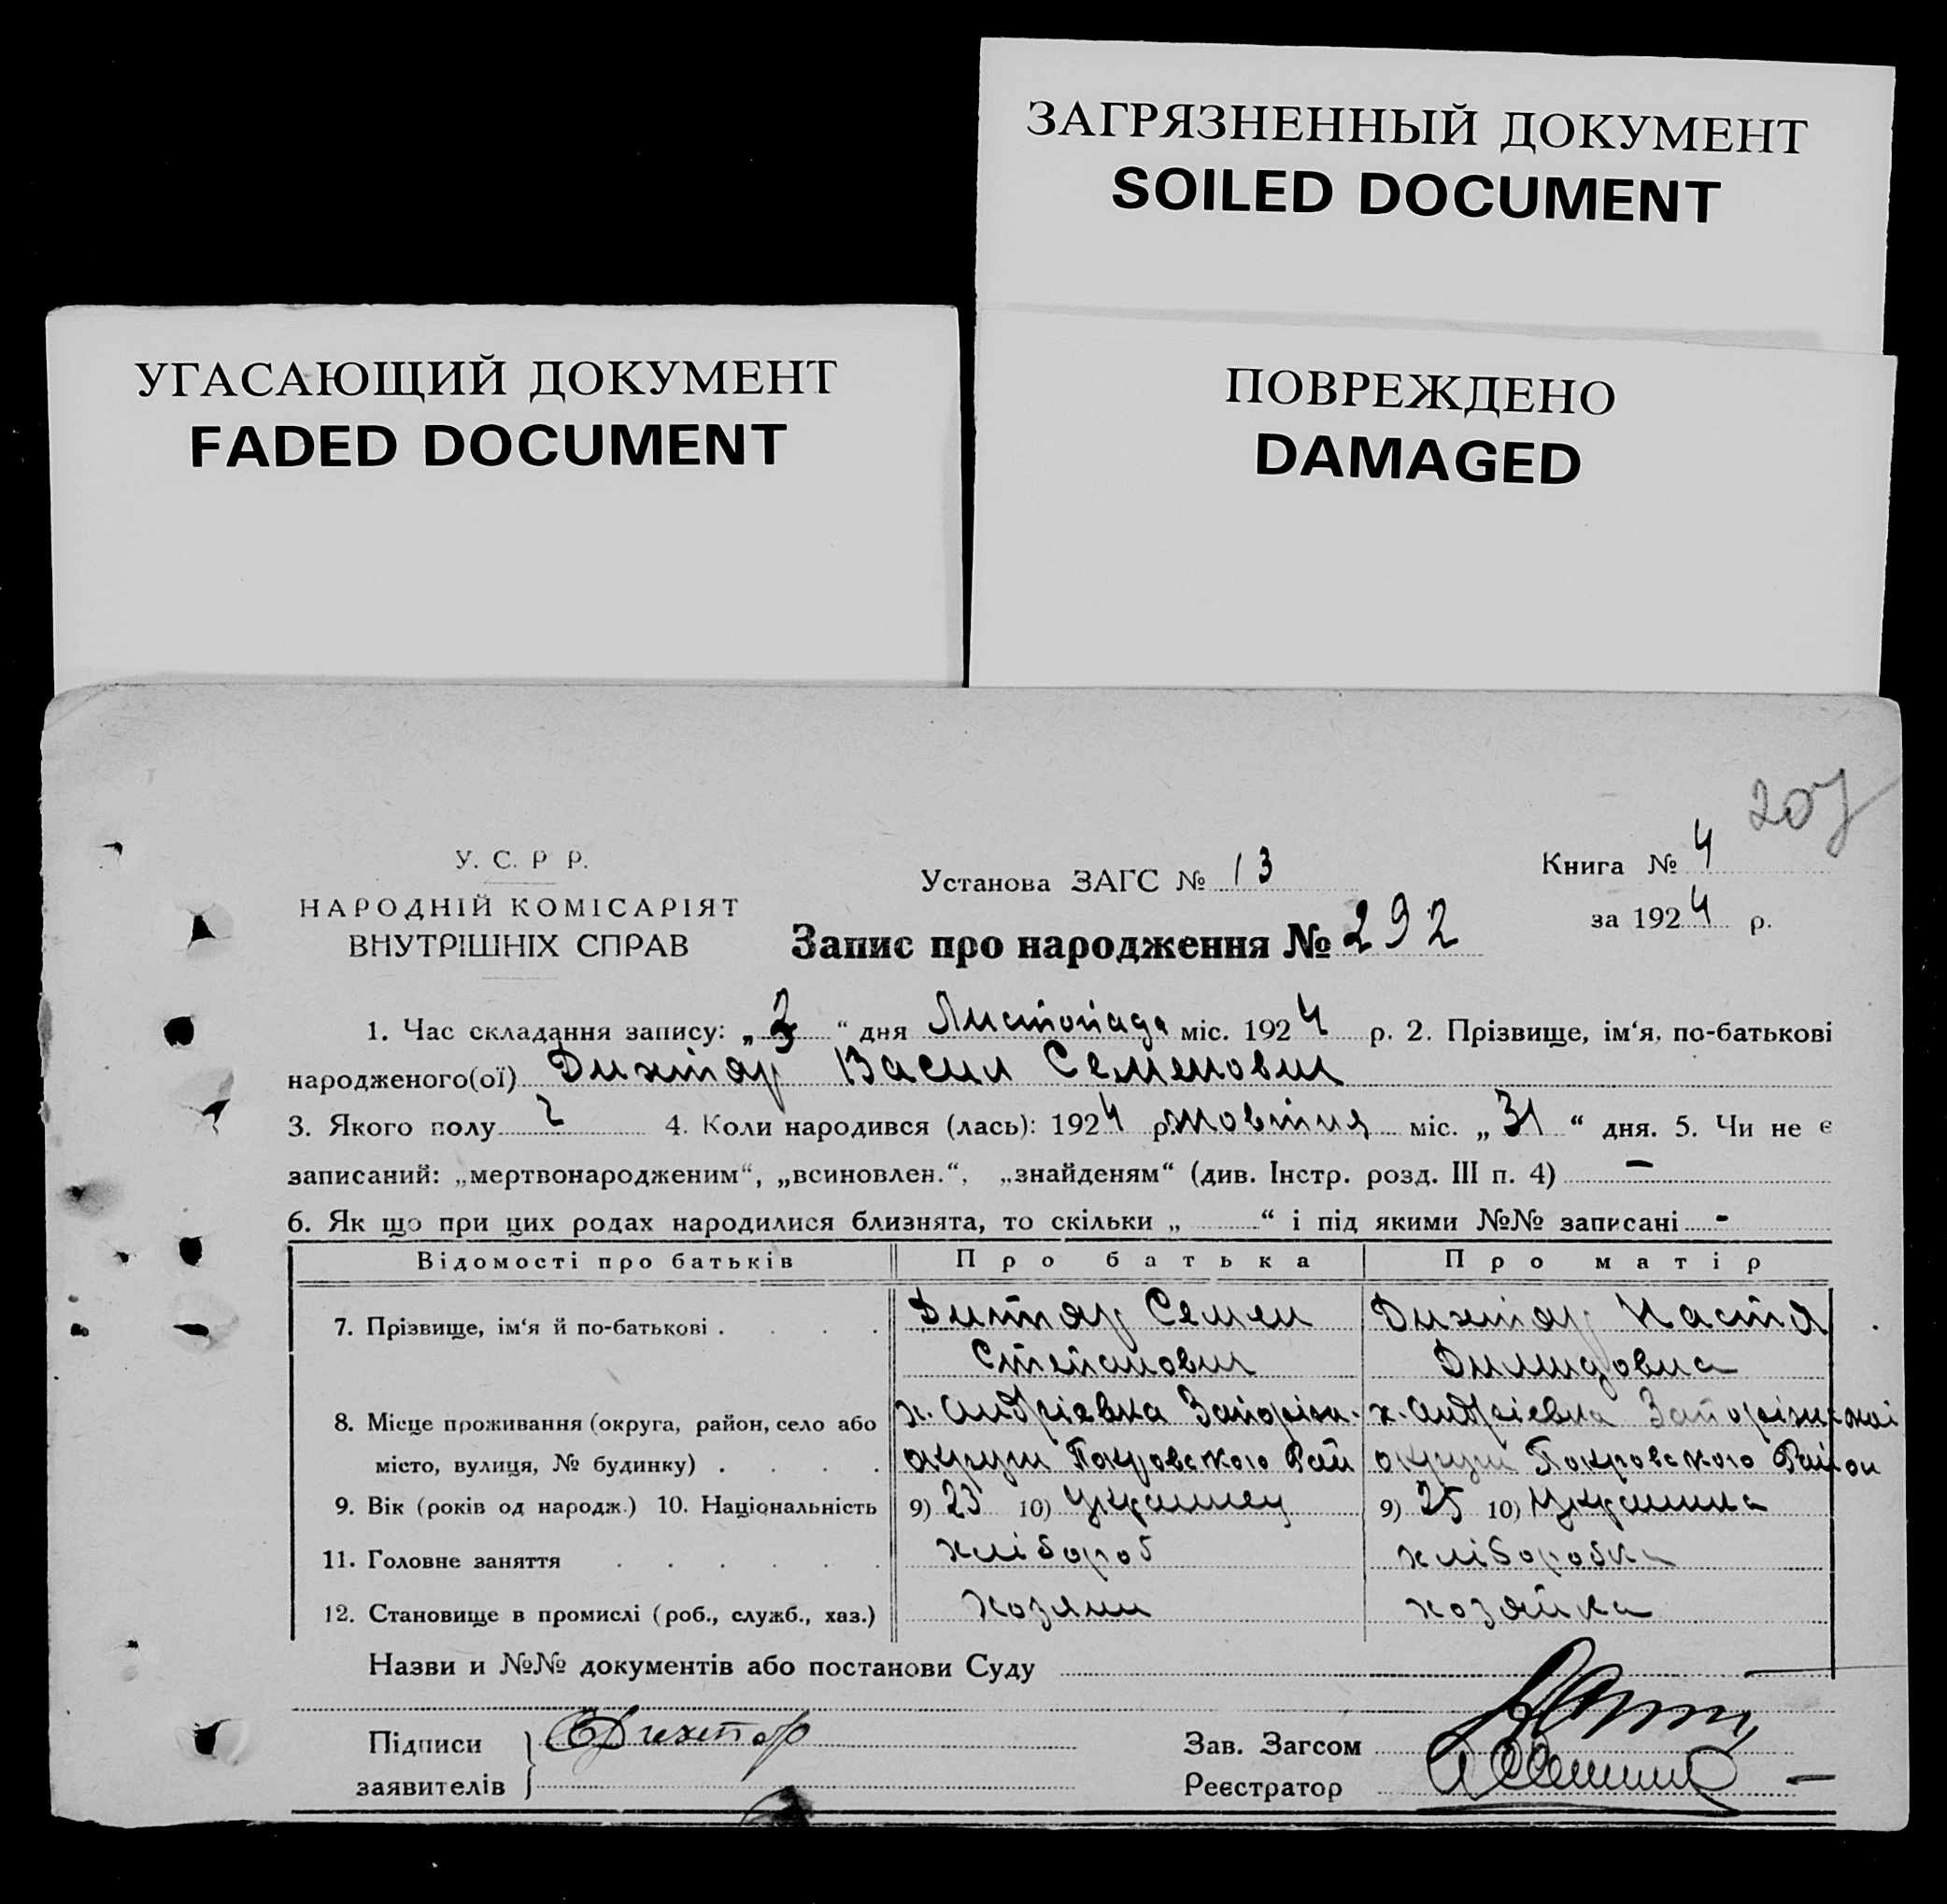 ЗАГРЯЗНЕННЫЙ ДОКУМЕНТ
SOILED DOCUMENT
УГАСАЮЩИЙ ДОКУМЕНТ
FADED DOCUMENT
ПОВРЕЖДЕНО
DAMAGED
207
У. С. Р Р.
НАРОДНІЙ КОМІСАРІЯТ
ВНУТРІШНІХ СПРАВ
Установа ЗАГС № 13
Запис про народження № 292
Книга № 4
за 1924 р.
1. Час складання запису: „3“ дня Листопада міс. 1924 р. 2. Прізвище, ім‘я, по-батькові
народженого(ої) Дихтяр Васил Семенович
3. Якого полу 4. Коли народився (лась): 1924 р. Жовтня міс. „31“ дня. 5. Чи не є
записаний: „мертвонародженим“, „всиновлен.“, „знайденям“ (див. Інстр. розд. III п. 4) –
6. Як що при цих родах народилися близнята, то скільки „ “ і під якими №№ записані -
Відомості про батьків Про батька Про матір
7. Прізвище, ім‘я й по-батькові . . . . Дихтяр Семен Дихтяр Настя
Степанович
8. Місце проживання (округа, район, село або х. Андріевка Запоріж. х. Андріевка Запоріжжкоі
місто, вулиця, № будинку) . . . . округи Покровского Рай округи Покровского Район
9. Вік (років од народж.) 10. Національність 9) 23 10) Украинец 9) 25 10) Украинка
11. Головне заняття . . . . . . хлібороб хлібороbка
12. Становище в промислі (роб., служб., хаз.) хозяин хозяйка
Назви и №№ документів або постанови Суду
Підписи
заявителів
СДихтяр
Зав. Загсом
Реєстратор